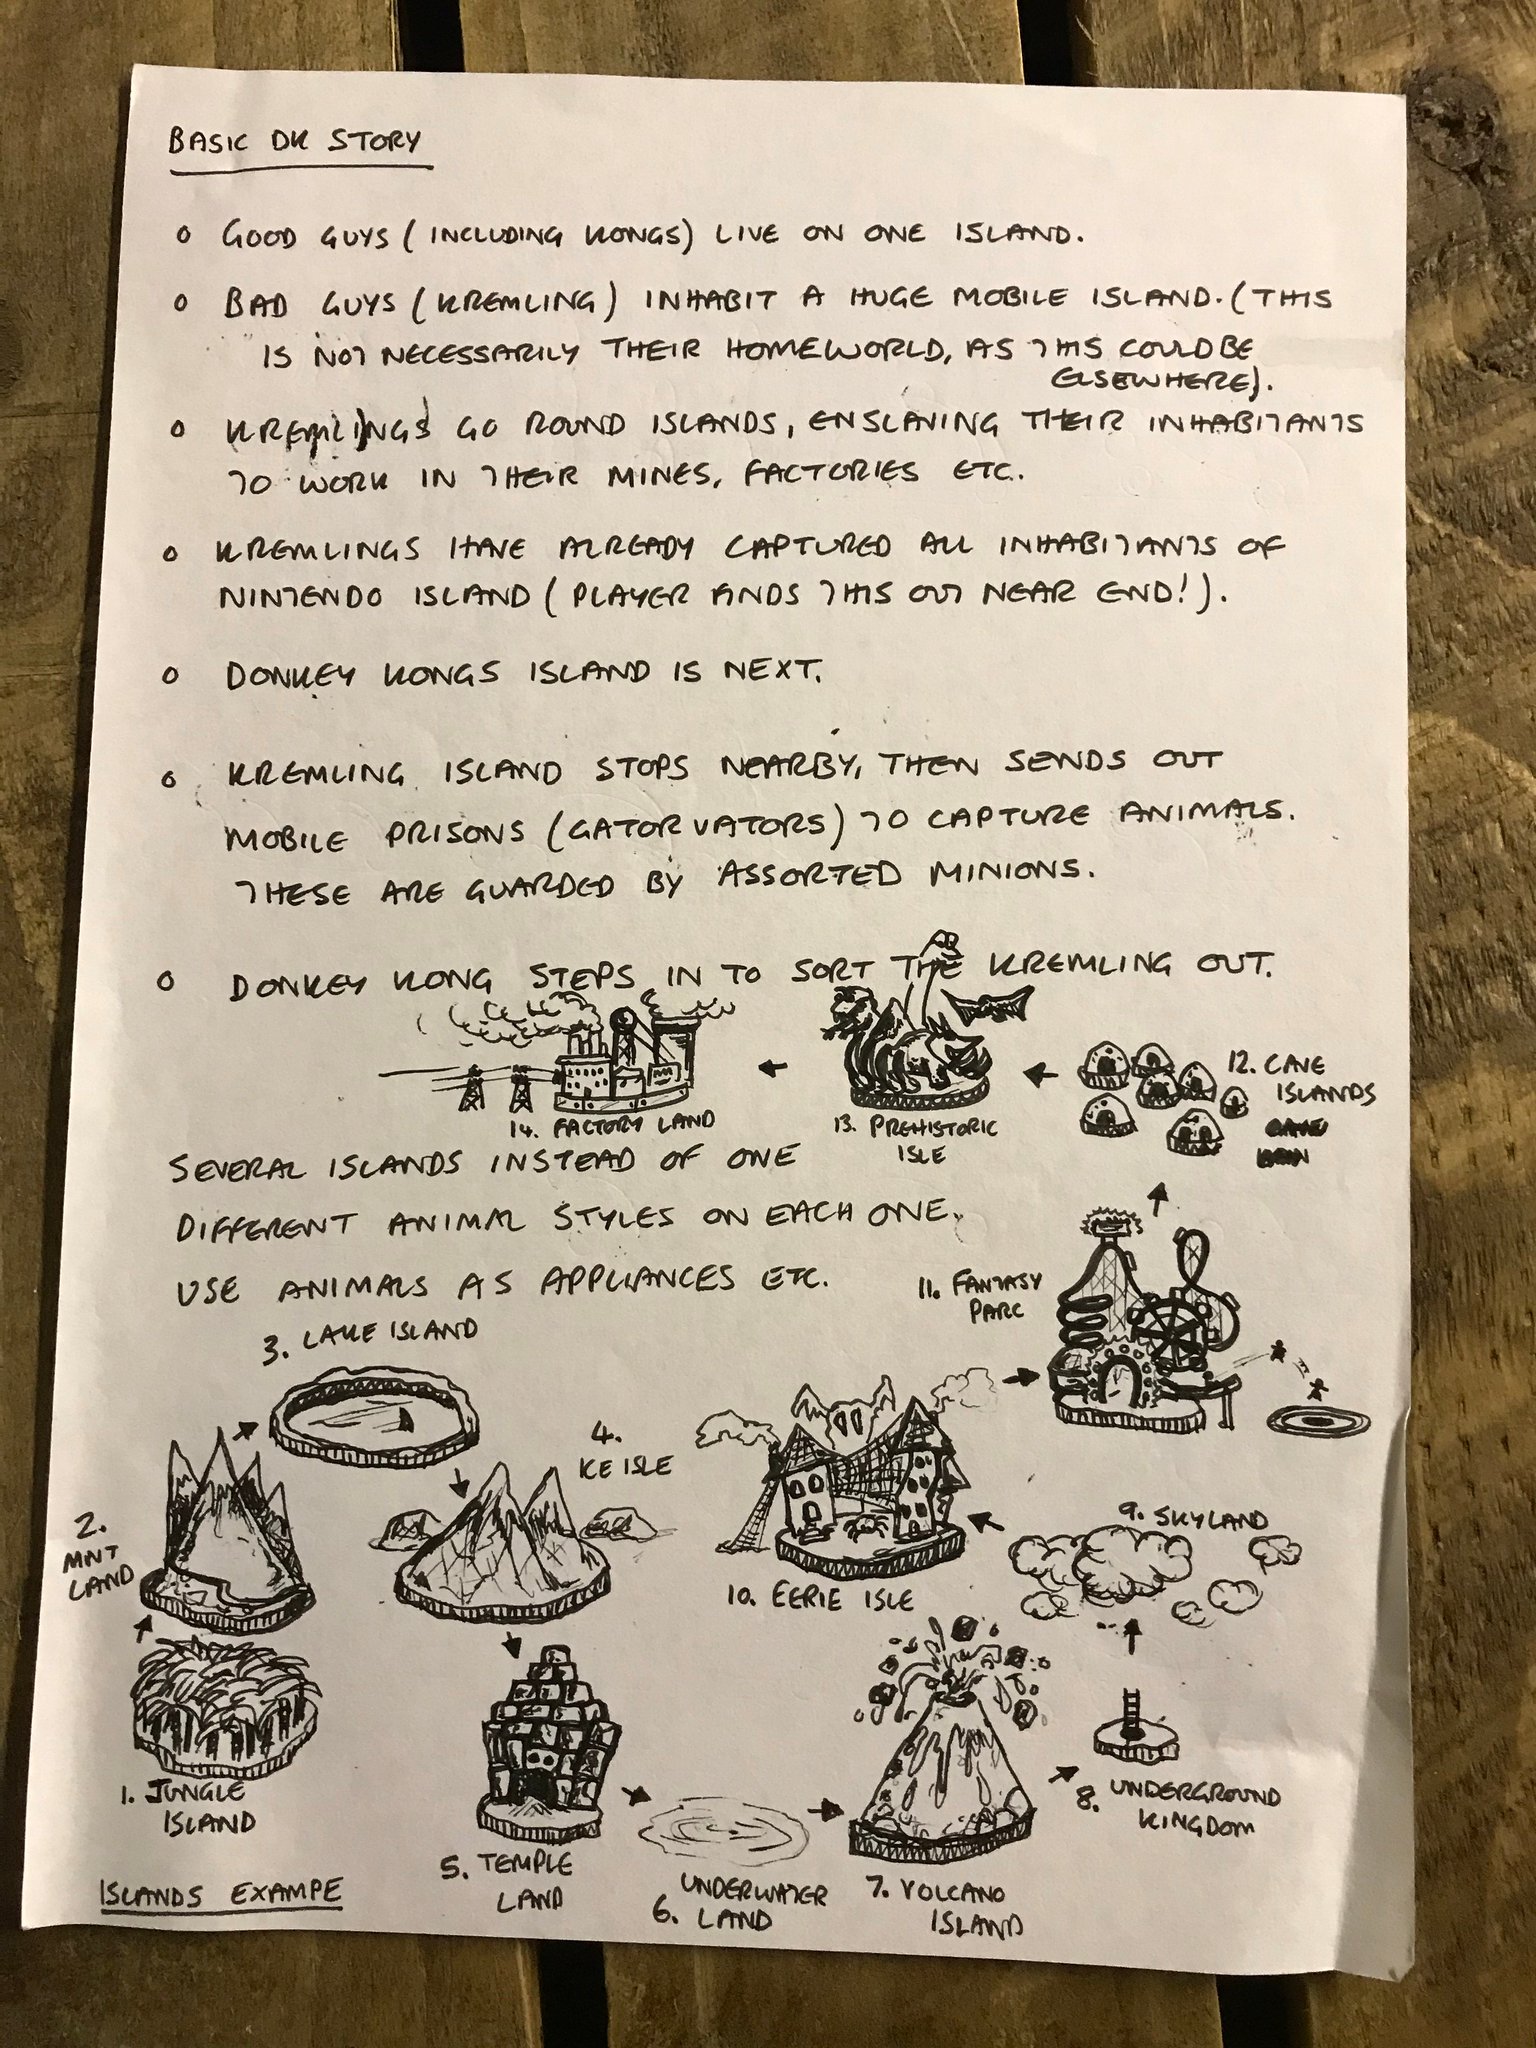 BASIC DK STORY
o GOOD GUYS (INCLUDING KONGS) LIVE ON ONE ISLAND.
o BAD GUYS (KREMLING) INHABIT A HUGE MOBILE ISLAND. (THIS
IS NOT NECESSARILY THEIR HOMEWORLD, AS THIS COULD BE
ELSEWHERE).
o KREMLINGS GO ROUND ISLANDS, ENSLAVING THEIR INHABITANTS
TO WORK IN THEIR MINES, FACTORIES ETC.
o KREMLINGS HAVE ALREADY CAPTURED ALL INHABITANTS OF
NINTENDO ISLAND (PLAYER FINDS THIS OUT NEAR END!).
o DONKEY KONGS ISLAND IS NEXT.
o KREMLING ISLAND STOPS NEARBY, THEN SENDS OUT
MOBILE PRISONS (GATORVATORS) TO CAPTURE ANIMALS.
THESE ARE GUARDED BY ASSORTED MINIONS.
o DONKEY KONG STEPS IN TO SORT THE KREMLING OUT.
14. FACTORY LAND
13. PREHISTORIC
ISLE
12. CAVE
ISLANDS
SEVERAL ISLANDS INSTEAD OF ONE
DIFFERENT ANIMAL STYLES ON EACH ONE.
USE ANIMALS AS APPLIANCES ETC.
11. FANTASY
PARC
3. LAKE ISLAND
4.
ICE ISLE
2.
MNT
LAND
9. SKYLAND
10. EERIE ISLE
1. JUNGLE
ISLAND
8. UNDERGROUND
KINGDOM
5. TEMPLE
LAND
UNDERWATER
6. LAND
7. VOLCANO
ISLAND
ISLANDS EXAMPE